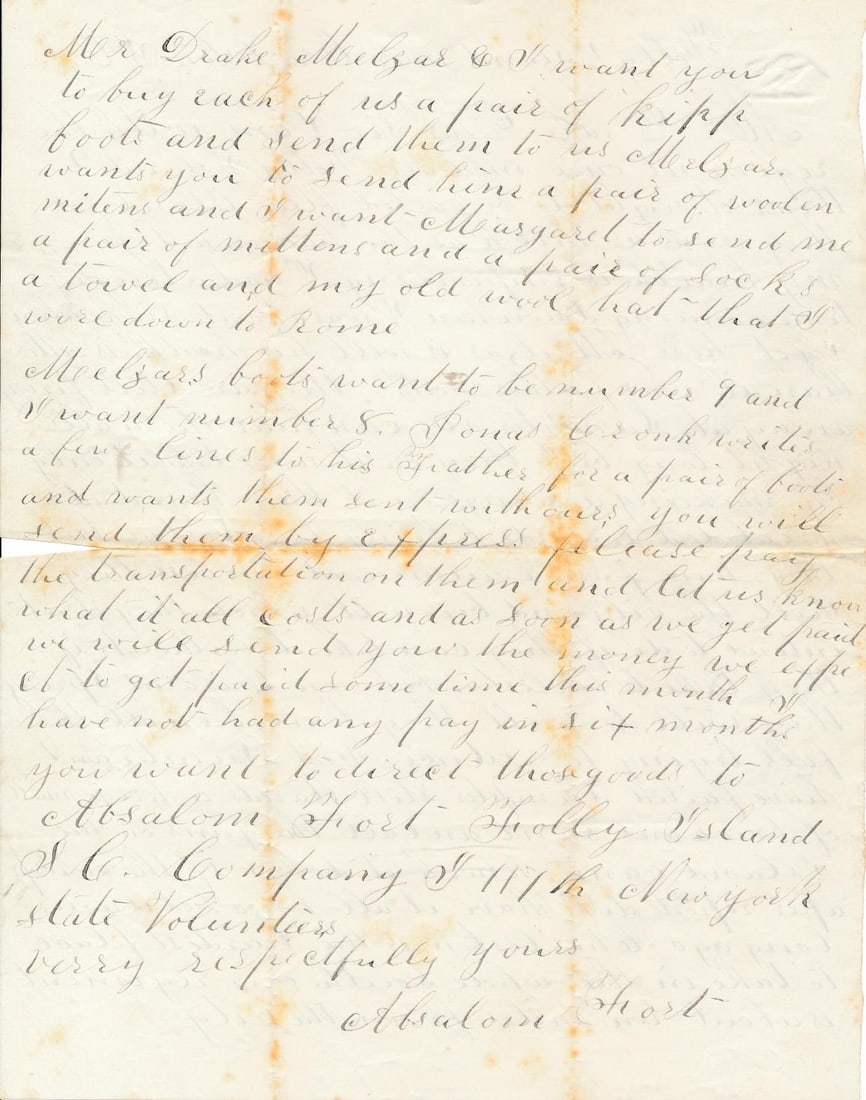 Mr Drake Melzar & I want you
to buy each of us a pair of kipp
boots and send them to us Melzar.
wants you to send him a pair of woolen
mitens and I want Margaret to send me
a pair of mittens and a pair of socks
a towel and my old wool hat that I
wore down to Rome
Melzars boots want to be number 9 and
I want number 8. Jonas Cronk writes
a few lines to his Father for a pair of boots
and wants them sent with ours, you will
send them by express please pay
the transportation on them and let us know
what it all costs and as soon as we get paid
we will send you the money we expe
ct to get paid some time this month I
have not had any pay in six months
you want to direct thos goods to
Absalom Fort Folly Island
S C. Company I 117th New york
state Volunteers
verry respectfully yours
Absalom Fort